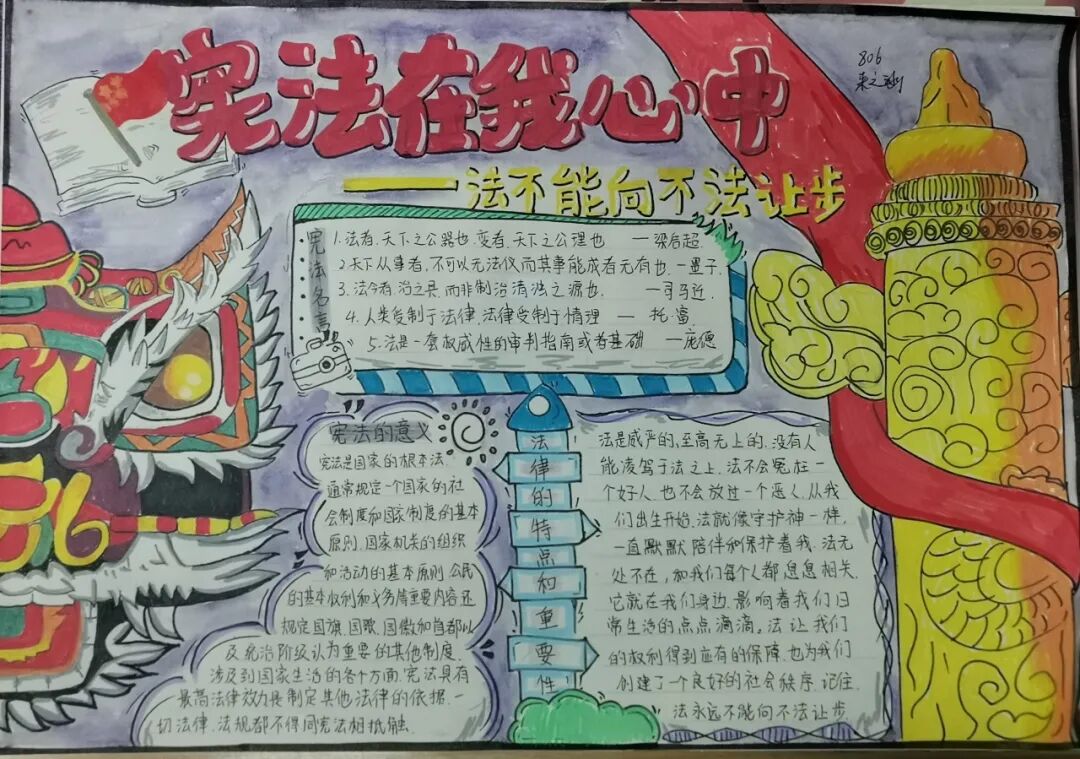 宪法在我心中
806
——法不能向不法让步
宪法名言
1.法者,天下之公器也.变者,天下之公理也 —梁启超
2.天下从事者,不可以无法仪而其事能成者无有也.—墨子.
3.法令者,治之具,而非制治清浊之源也. —司马迁.
4.人类受制于法律,法律受制于情理 — 托·富
5.法是一套权威性的审判指南或者基础 —庞德
宪法的意义
宪法是国家的根本法.
通常规定一个国家的社
会制度和国家制度的基本
原则.国家机关的组织
和活动的基本原则.公民
的基本权利和义务等重要内容.还
规定国旗.国歌.国徽和首都以
及统治阶级认为重要的其他制度.
涉及到国家生活的各个方面.宪法具有
最高法律效力是制定其他法律的依据.一
切法律.法规都不得同宪法相抵触.
法律的特点和重要性
法是威严的,至高无上的.没有人
能凌驾于法之上.法不会冤枉一
个好人.也不会放过一个恶人.从我
们出生开始.法就像守护神一样,
一直默默陪伴和保护着我.法无
处不在,和我们每个人都息息相关.
它就在我们身边.影响着我们日
常生活的点点滴滴。法让我们
的权利得到应有的保障.也为我们
创建了一个良好的社会秩序.记住,
法永远不能向不法让步